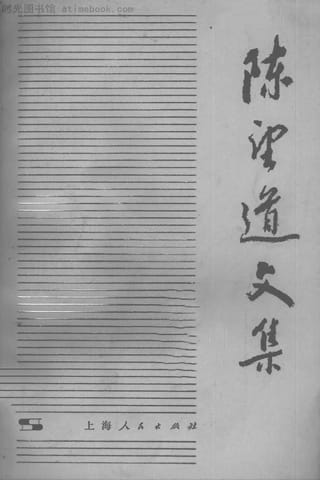 时光图书馆 atimebook.com
陈望道文集
上海人民出版社